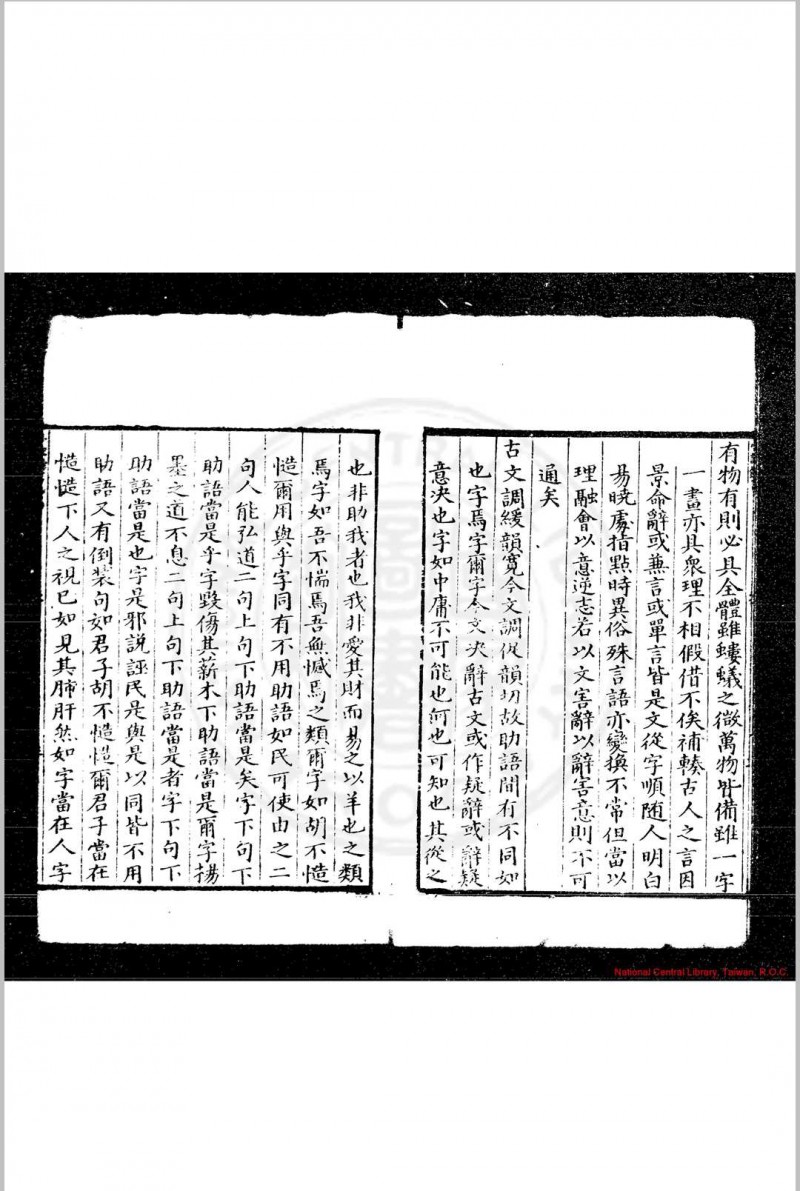 有物有則必具全體雖螻蟻之微萬物皆備雖一字
一畫亦具衆理不相假借不俟補輳古人之言因
景命辭或兼言或單言皆是文從字順隨人明白
易曉處指點時異俗殊言語亦變換不常但當以
理融會以意逆志若以文害辭以辭害意則不可
通矣
古文調緩韻寬今文調促韻切故助語間有不同如
也字焉字爾字今文決辭古文或作疑辭或辭疑
意決也字如中庸不可能也何也可知也其從之
也非助我者也我非愛其財而易之以羊也之類
焉字如吾不惴焉吾無憾焉之類爾字如胡不慥
慥爾用與乎字同有不用助語如民可使由之二
句人能弘道二句上句下助語當是矣字下句下
助語當是乎字毀傷其薪木下助語當是爾字揚
墨之道不息二句上句下助語當是者字下句下
助語當是也字是邪說誣民是與是以同皆不用
助語又有倒裝句如君子胡不慥慥爾君子當在
慥慥下人之視已如見其肺肝然如字當在人字
National Central Library, Taiwan, R.O.C.